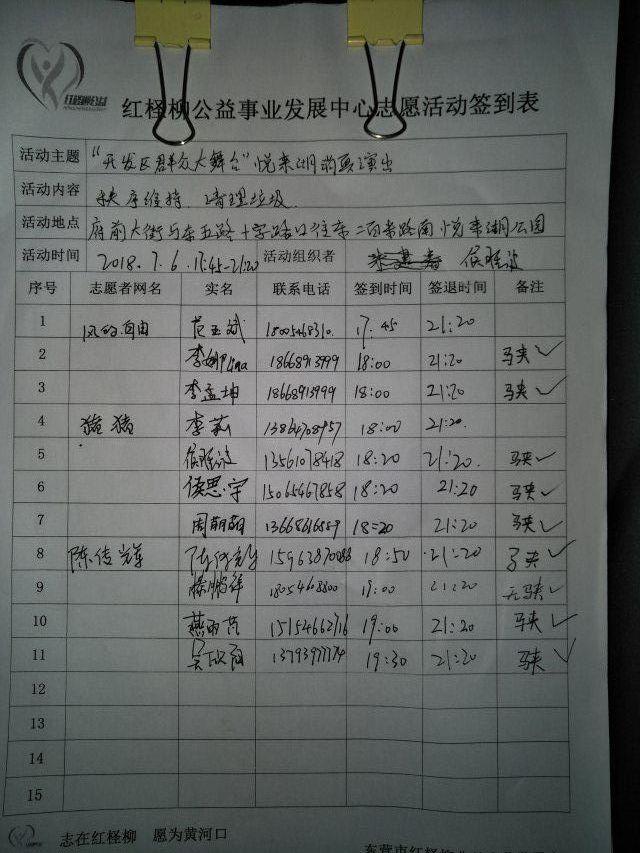 红柽柳公益
红柽柳公益事业发展中心志愿活动签到表
活动主题 "开发区群众大舞台"悦来湖消夏演出
活动内容 秩序维持、清理垃圾.
活动地点 府前大街与东五路十字路口往东二百米路南悦来湖公园
活动时间 2018.7.6 17:45-21:20 活动组织者
序号 志愿者网名 实名 联系电话 签到时间 签退时间 备注
1 风的自由 范玉斌 18005468310. 17.45 21:20
2 18668913999 18:00 21:20 马夹✓
3 李孟坤 18668913999 18:00 21:20 马夹✓
4 猪猪 13864708957 18:00 21:20.
5 13561078418 18:20 21:20. 马夹✓
6 侯思宇 15065467858 18:20 21:20 马夹✓
7 周萌萌 18=20 21:20 马夹✓
8 陈传辉 陈传辉 18:50 21:20 马夹✓
9 19:00 21:20 无马夹✓
10 19:00 21:20 马夹✓
11 19:30 21:20 马夹✓
12
13
14
15
志在红柽柳 愿为黄河口